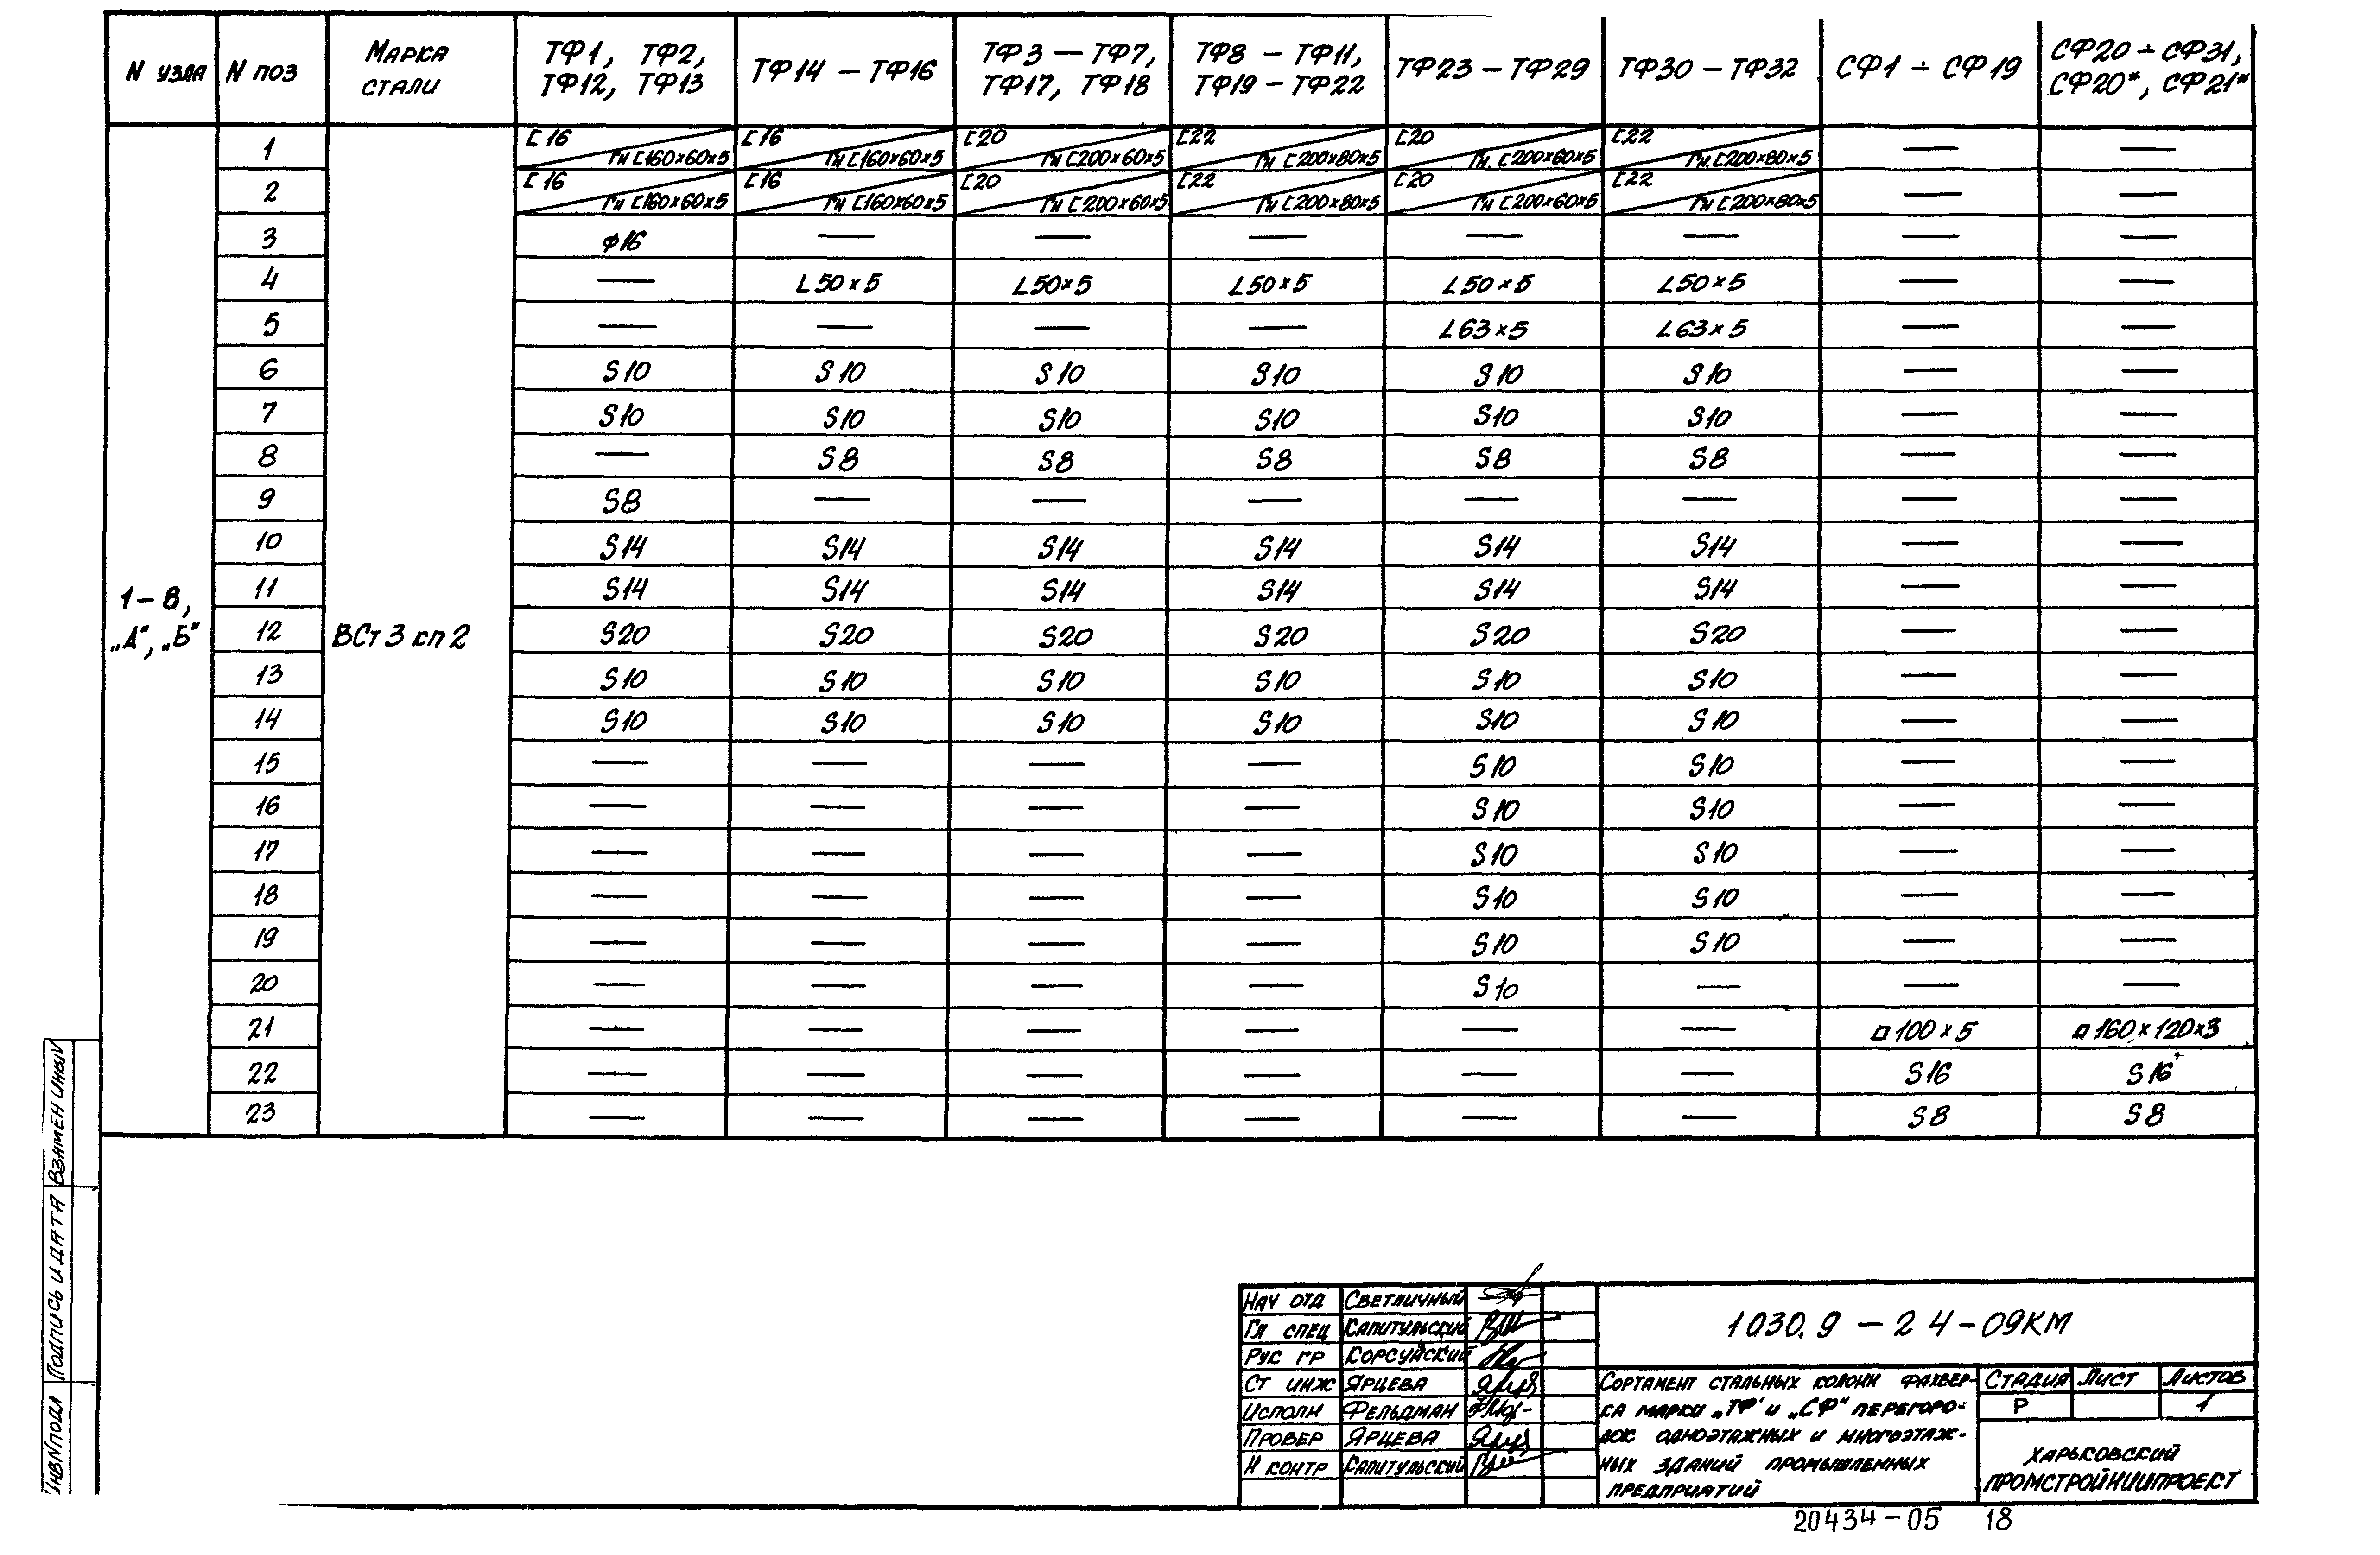 N узла N поз Марка стали ТФ1, ТФ2, ТФ12, ТФ13 ТФ14 – ТФ16 ТФ3 — ТФ7, ТФ17, ТФ18 ТФ8 – ТФ11, ТФ19 – ТФ22 ТФ23 – ТФ29 ТФ30 – ТФ32 СФ1 ÷ СФ19 СФ20 ÷ СФ31, СФ20*, СФ21*
1 [16 Гн [160×60×5 [16 Гн [160×60×5 [20 Гн [200×60×5 [22 Гн [200×80×5 [20 Гн. [200×60×5 [22 Гн. [200×80×5 — —
2 [16 Гн [160×60×5 [16 Гн [160×60×5 [20 Гн [200×60×5 [22 Гн [200×80×5 [20 Гн [200×60×5 [22 Гн [200×80×5 — —
3 ф16 — — — — — — —
4 — L50×5 L50×5 L50×5 L50×5 L50×5 — —
5 — — — — L63×5 L63×5 — —
6 S10 S10 S10 S10 S10 S10 — —
7 S10 S10 S10 S10 S10 S10 — —
8 — S8 S8 S8 S8 S8 — —
9 S8 — — — — — — —
10 S14 S14 S14 S14 S14 S14 — —
11 S14 S14 S14 S14 S14 S14 — —
1–8, „А", „Б"
ВСт3 кп2
12 S20 S20 S20 S20 S20 S20 — —
13 S10 S10 S10 S10 S10 S10 — —
14 S10 S10 S10 S10 S10 S10 — —
15 — — — — S10 S10 — —
16 — — — — S10 S10 — —
17 — — — — S10 S10 — —
18 — — — — S10 S10 — —
19 — — — — S10 S10 — —
20 — — — — S10 — — —
21 — — — — — — □100×5 □160×120×3
22 — — — — — — S16 S16
23 — — — — — — S8 S8
Инв N подл Подпись и дата Взамен инв N
Нач отд Светличный
Гл спец Капитульский
Рук гр Корсунский
Ст инж Ярцева
Исполн Фельдман
Провер Ярцева
Н контр Капитульский
1030.9 – 2 4 – 09КМ
Сортамент стальных колонн фахвер-
ка марки „ТФ" и „СФ" перегоро-
док одноэтажных и многоэтаж-
ных зданий промышленных
предприятий
Стадия Лист Листов
Р 1
Харьковский
Промстройниипроект
20434-05 18